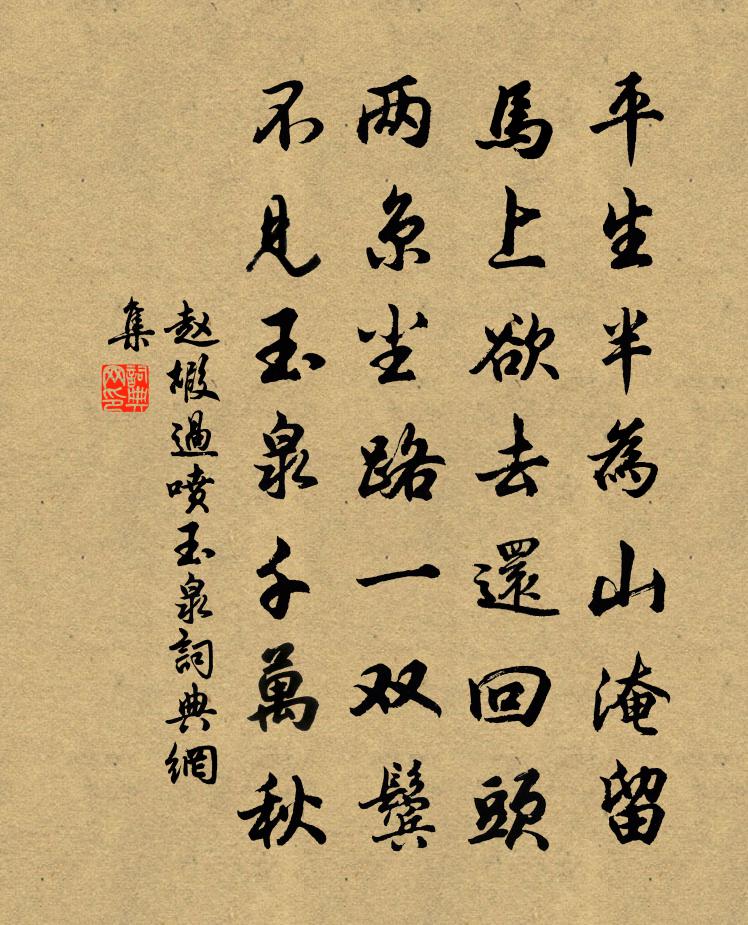 平生半為山淹留
馬上欲去還回頭
两京尘路一双鬓
不見玉泉千萬秋
赵嘏過喷玉泉詞典網
集
詞典网印